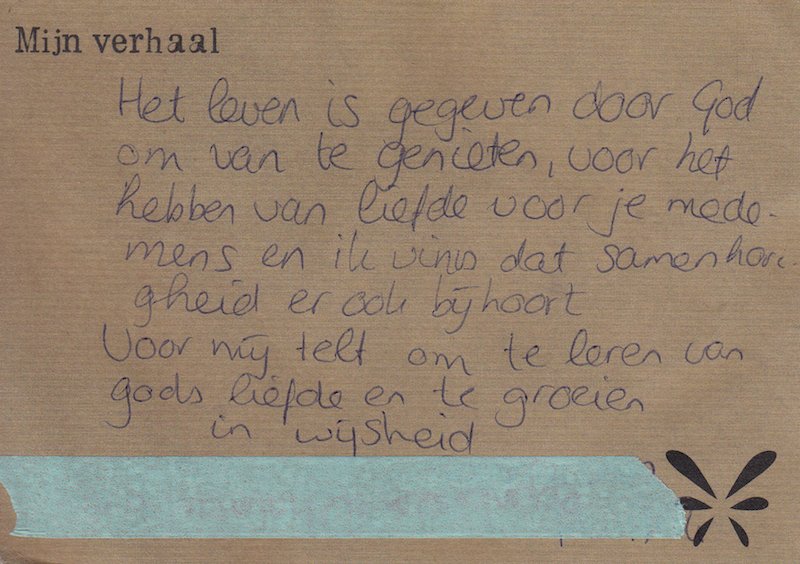 Mijn verhaal
Het leven is gegeven door God
om van te genieten, voor het
hebben van liefde voor je mede-
mens en ik vind dat samenhori-
gheid er ook bijhoort
Voor mij telt om te leren van
gods liefde en te groeien
in wijsheid